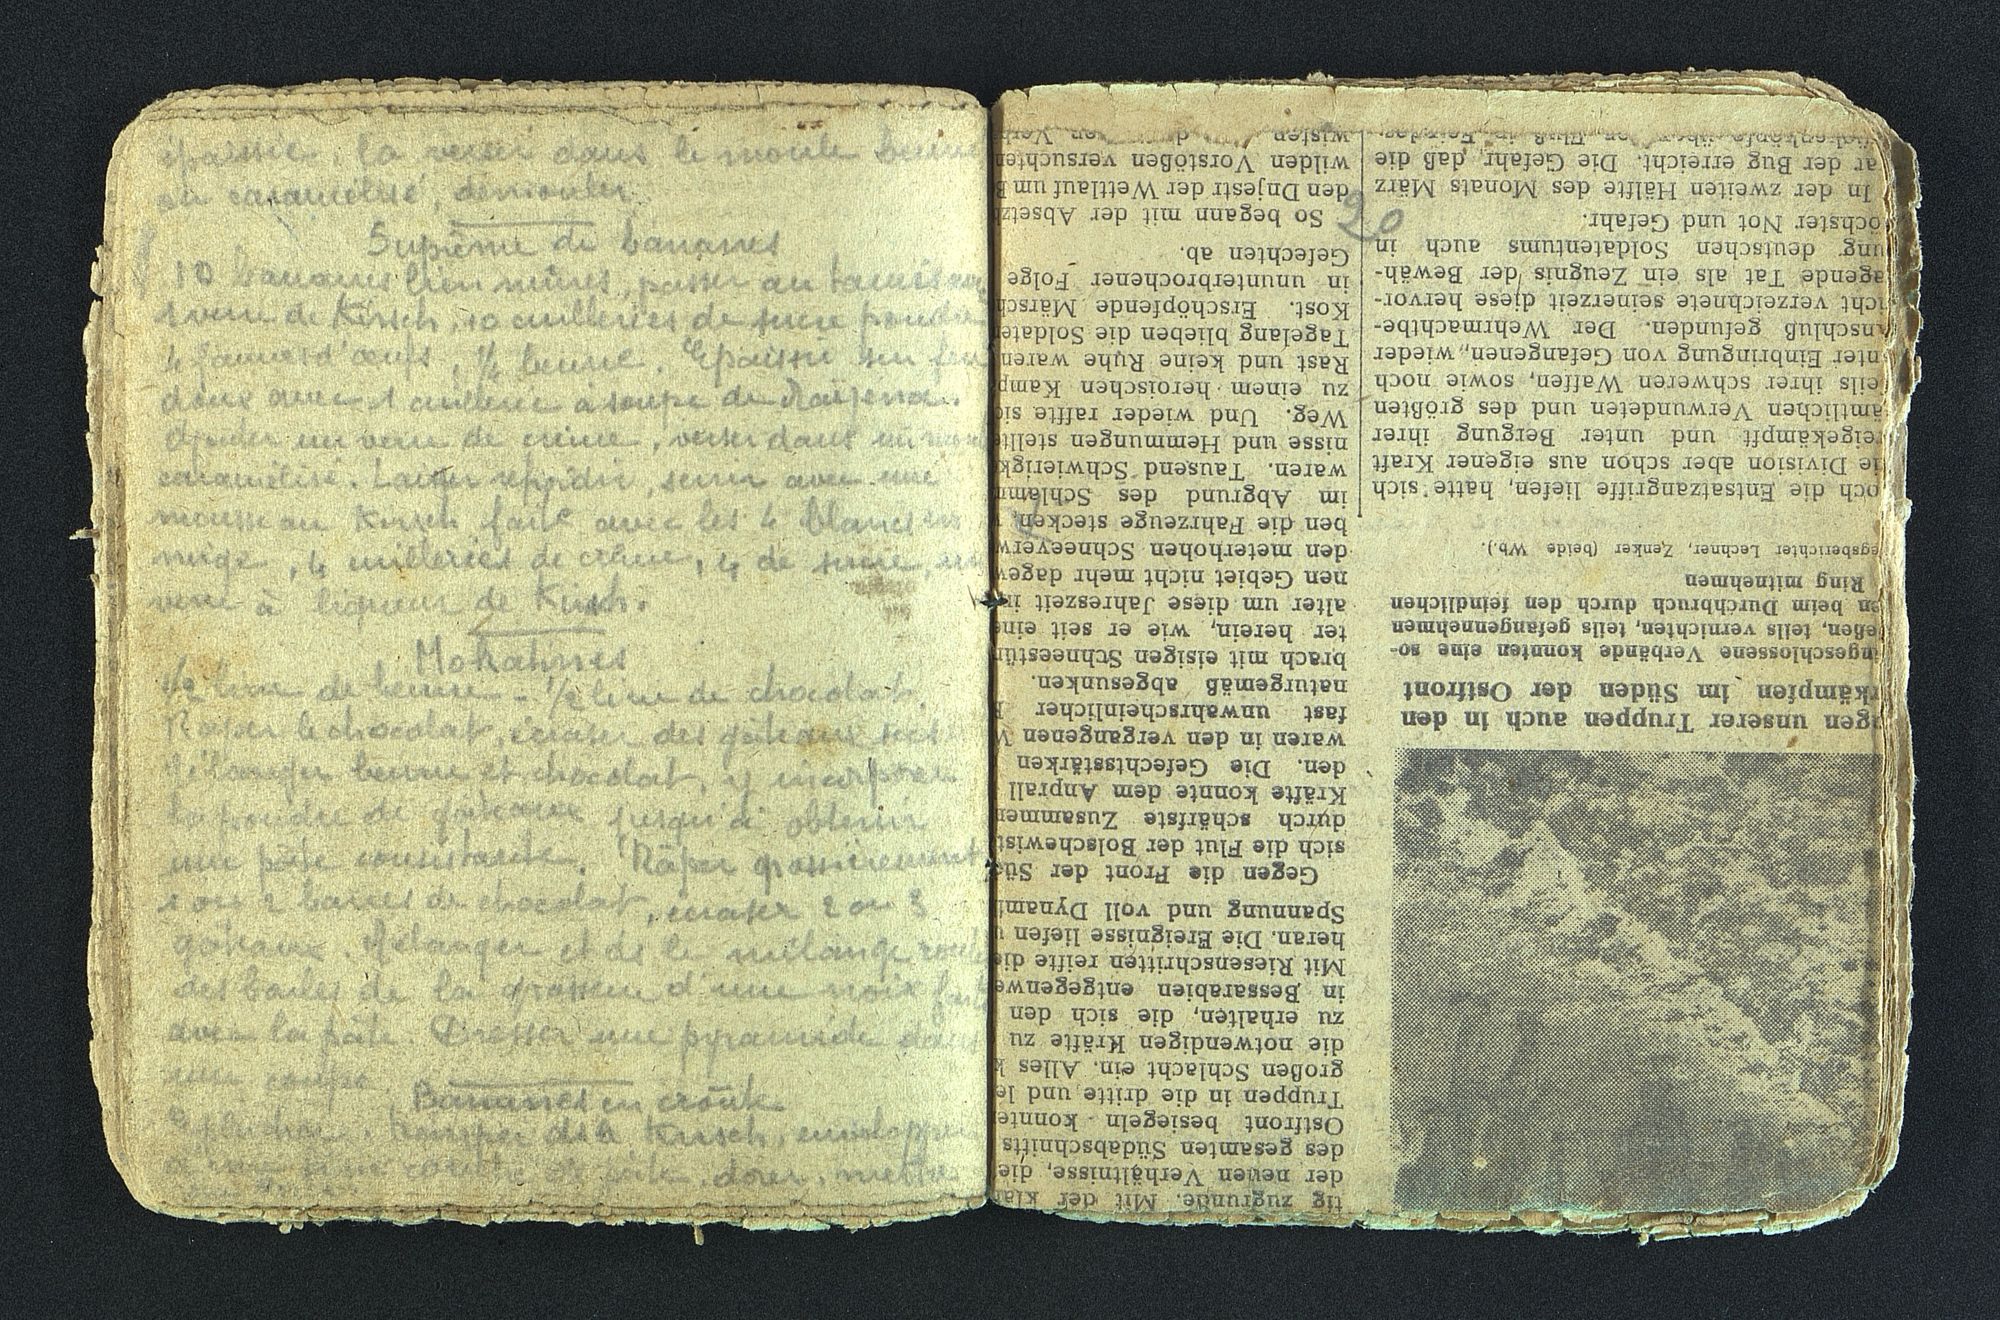 épaissie, la verser dans le moule beurré
ou caramélisé, démouler.
Suprême de bananes
10 bananes bien mûres, passer au tamis avec
1 verre de Kirsch, 10 cuillerées de sucre poudre
4 jaunes d'œufs, 1/4 beurre. Epaissir sur feu
doux avec 1 cuillerée à soupe de Maïzena.
Ajouter un verre de crème, verser dans un moule
caramélisé. Laisser refroidir, servir avec une
mousse au Kirsch faite avec les 4 blancs en
neige, 4 cuillerées de crème, 4 de sucre, un
verre à liqueur de Kirsch.
Mokatines
1/2 livre de beurre - 1/2 livre de chocolat.
Râper le chocolat, écraser des gâteaux secs
Mélanger beurre et chocolat, y incorporer
la poudre de gâteaux jusqu'à obtenir
une pâte consistante. Râper grossièrement
1 ou 2 barres de chocolat, écraser 2 ou 3
gâteaux. Mélanger et ds le mélange rouler
des boules de la grosseur d'une noix faites
avec la pâte. Dresser une pyramide dans
une coupe
Bananes en croûte
Eplucher, tremper ds le Kirsch, envelopper
pâte, dorer, mettre
20
gen unserer Truppen auch in den
rkämpfen im Süden der Ostfront
ingeschlossene Verbände konnten eine so-
ießen, teils vernichten, teils gefangennehmen
en beim Durchbruch durch den feindlichen
Ring mitnehmen
egsberichter Lechner, Zenker (beide Wb.).
och die Entsatzangriffe liefen, hatte sich
ie Division aber schon aus eigener Kraft
reigekämpft und unter Bergung ihrer
ämtlichen Verwundeten und des größten
eils ihrer schweren Waffen, sowie noch
nter Einbringung von Gefangenen, wieder
nschluß gefunden. Der Wehrmachtbe-
icht verzeichnete seinerzeit diese hervor-
agende Tat als ein Zeugnis der Bewäh-
ung deutschen Soldatentums auch in
öchster Not und Gefahr.
In der zweiten Hälfte des Monats März
ar der Bug erreicht. Die Gefahr, daß die
tig zugrunde. Mit der klar
der neuen Verhältnisse, die
des gesamten Südabschnitts
Ostfront besiegeln konnte
Truppen in die dritte und le
großen Schlacht ein. Alles k
die notwendigen Kräfte zu
zu erhalten, die sich den
in Bessarabien entgegenwe
Mit Riesenschritten reifte die
heran. Die Ereignisse liefen
Spannung und voll Dynami
Gegen die Front der Süd
sich die Flut der Bolschewist
durch schärfste Zusammen
Kräfte konnte dem Anprall
den. Die Gefechtsstärken
waren in den vergangenen W
fast unwahrscheinlicher
naturgemäß abgesunken.
brach mit eisigen Schneestür
ter herein, wie er seit eine
alter um diese Jahreszeit in
nen Gebiet nicht mehr dagew
den meterhohen Schneeverw
ben die Fahrzeuge stecken
im Abgrund des Schlamm
waren. Tausend Schwierigk
nisse und Hemmungen stellte
Weg. Und wieder raffte sic
zu einem heroischen Kamp
Rast und keine Ruhe waren
Tagelang blieben die Soldate
Kost. Erschöpfende Märsch
in ununterbrochener Folge
Gefechten ab.
So begann mit der Absetz
den Dnjestr der Wettlauf um B
wilden Vorstößen versuchten
wisten